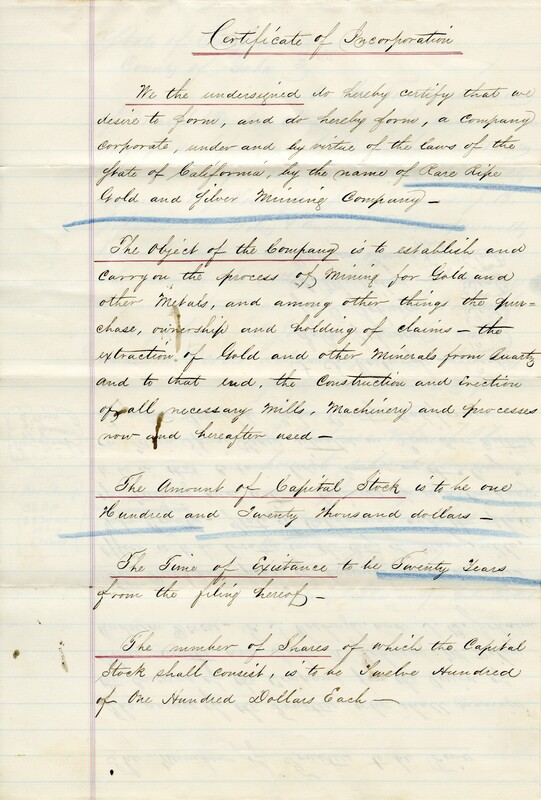 Certificate of Incorporation
We the undersigned do hereby certify that we
desire to form, and do hereby form, a Company
corporate, under and by virtue of the laws of the
State of California, by the name of Rare Ripe
Gold and Silver Mining Company —
The Object of the Company is to establish and
carry on the process of Mining for Gold and
other Metals, and among other things the pur=
chase, ownership and holding of claims — the
extraction of Gold and other Minerals from Quartz
and to that end, the Construction and Erection
of all necessary Mills, Machinery and processes
now and hereafter used —
The Amount of Capital Stock is to be one
Hundred and Twenty Thousand dollars —
The Time of Existance to be Twenty Years
from the filing hereof —
The number of Shares of which the Capital
Stock shall consist, is to be Twelve Hundred
of One Hundred Dollars Each —